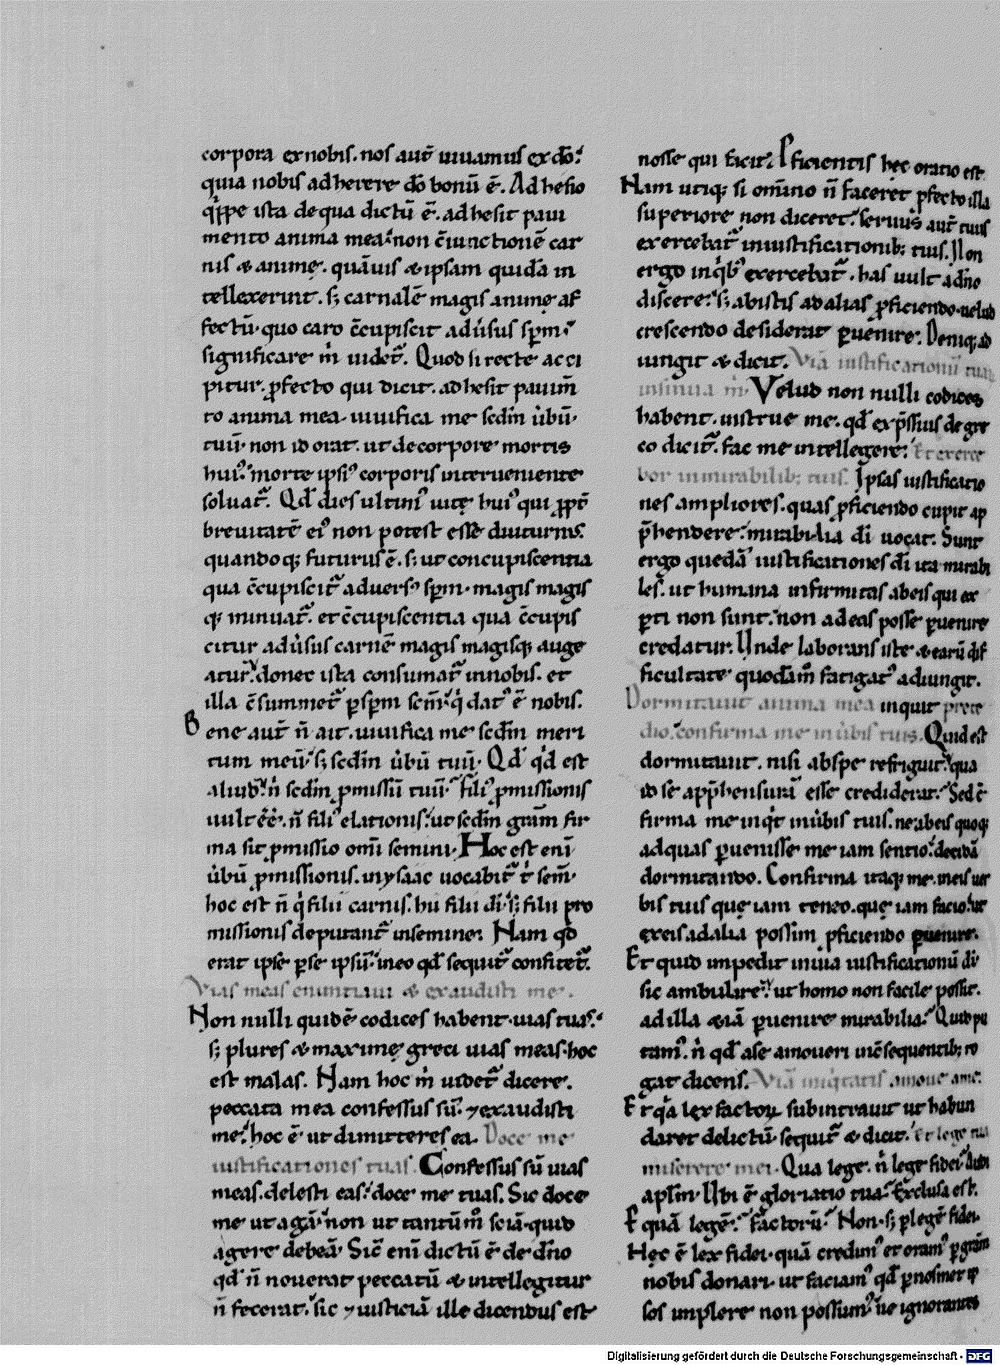 corpora ex nobis. nos aut̄ uiuamus ex d̄o.
quia nobis adherere d̄o bonū ē. Adhesio
q̄ppe ista de qua dictū ē. adhesit paui
mento anima mea. non c̄iunctionē car
nis & animę. quāuis & ipsam quidā in
tellexerint. s; carnalē magis animę af
fectū. quo caro c̄cupiscit adūsus sp̄m.
significare m̄ uidet̄. Quod si recte acci
pitur. ꝓfecto qui dicit. adhesit pauim̄
to anima mea. uiuifica me sedm̄ ūbū
tuū. non id orat. ut de corpore mortis
hui᾿ morte ipsi᾿ corporis interueniente
soluat̄. Qd̄ dies ultim᾿ uitę hui᾿ qui ꝓpt̄
breuitatē ei᾿ non potest esse diuturn᾿.
quandoq; futurus ē. s; ut concupiscentia
qua c̄cupiscit̄ aduers᾿ sp̄m. magis magis
q; minuat̄. et c̄cupiscentia qua c̄cupis
citur adūsus carnē magis magisq; auge
atur. donec ista consumat̄ in nobis. et
illa c̄summet̄ ꝑ sp̄m sc̄m. q̇ dat᾿ ē nobis.
Bene aut̄ n̄ ait. uiuifica me sedm̄ meri
tum meū. s; sedm̄ ūbū tuū. Qd̄ q̇d est
aliud. n̄ sedm̄ ꝓmissū tuū. fili᾿ ꝓmissionis
uult ēē. n̄ fili᾿ elationis. ut sedm̄ grām fir
ma sit ꝓmissio om̄i semini. Hoc est enī
ūbū ꝓmissionis. in ysaac uocabit̄ t̄ sem̄.
hoc est n̄ q̇ filii carnis. hii filii d̄i. s; filii pro
missionis deputant̄ in semine. Nam qd̄
erat ipse ꝑ se ipsū. in eo qd̄ sequit̄ confitet̄.
Vias meas enuntiaui & exaudisti me.
Non nulli quidē codices habent. uias tuas.
s; plures & maximę greci uias meas. hoc
est malas. Nam hoc m̄ uidet̄ dicere.
peccata mea confessus sū. ⁊ exaudisti
me. hoc ē. ut dimitteres ea. Doce me
iustificationes tuas. Confessus sū uias
meas. delesti eas. doce me tuas. Sic doce
me ut agā. non ut tantūm̊ sciā quid
agere debeā. Sic̄ enī dictū ē de dn̄o
qd̄ n̄ nouerat peccatū & intellegitur
n̄ fecerat. sic ⁊ iusticiā ille dicendus est
nosse qui facit. Pficientis hęc oratio est.
Nam utiq; si omnino n̄ faceret ꝓfecto illa
superiore non diceret. seruus aut̄ tuus
exercebat̄ in iustificationib; tuis. Non
ergo in q̇b᾿ exercebat̄. has uult a dn̄o
discere. s; ab istis ad alias ꝓficiendo. uelud
crescendo desiderat ꝑuenire. Deniq; ad
iungit & dicit. Viā iustificationū tuaꝝ
insinua m̄. Velud non nulli codices
habent. instrue me. qd̄ exp̄ssius de gre
co dicit̄. fac me intellegere. Et exerce
bor in mirabilib; tuis. Ipsas iustificatio
nes ampliores. quas ꝓficiendo cupit ap
p̄hendere. mirabilia d̄i uocat. Sunt
ergo quedā iustificationes d̄i ita mirabi
les. ut humana infirmitas ab eis qui ex
ꝑti non sunt. non ad eas posse ꝑuenire
credatur. Unde laborans iste & earū dif
ficultate quodām̊ fatigat᾿ adiungit.
Dormitauit anima mea inquit prete
dio. confirma me in ūbis tuis. Quid est
dormitauit. nisi ab spe refriguit. qua
id se app̄hensurū esse crediderat. Sed c̄
firma me inq̇t in ūbis tuis. ne ab eis quoq;
ad quas ꝑuenisse me iam sentio. decidā
dormitando. Confirma itaq; me. in eis uer
bis tuis quę iam teneo. quę iam facio. ut
ex eis ad alia possim ꝓficiendo ꝑuenire.
Et quid impedit in uia iustificationū d̄i
sic ambulare. ut homo non facile possit.
ad illa &iā ꝑuenire mirabilia. Quid pu
tam᾿. n̄ qd̄ a se amoueri in c̄sequentib; ro
gat dicens. Viā iniq̇tatis amoue a me.
Et qa lex factoꝝ subintrauit ut habun
daret delictū. sequit̄ & dicit. Et lege tua
miserere mei. Qua lege. n̄ lege fidei. Audi
ap̄lm. Ubi ē gloriatio tua. Exclusa est.
P quā legē. factorū. Non. s; ꝑ legē fidei.
Hęc ē lex fidei. quā credim᾿ et oram᾿ ꝑ grām
nobis donari. ut faciam᾿ qd̄ ꝑ nosmet ip
sos implere non possum᾿. ne ignorantes
Digitalisierung gefördert durch die Deutsche Forschungsgemeinschaft - DFG